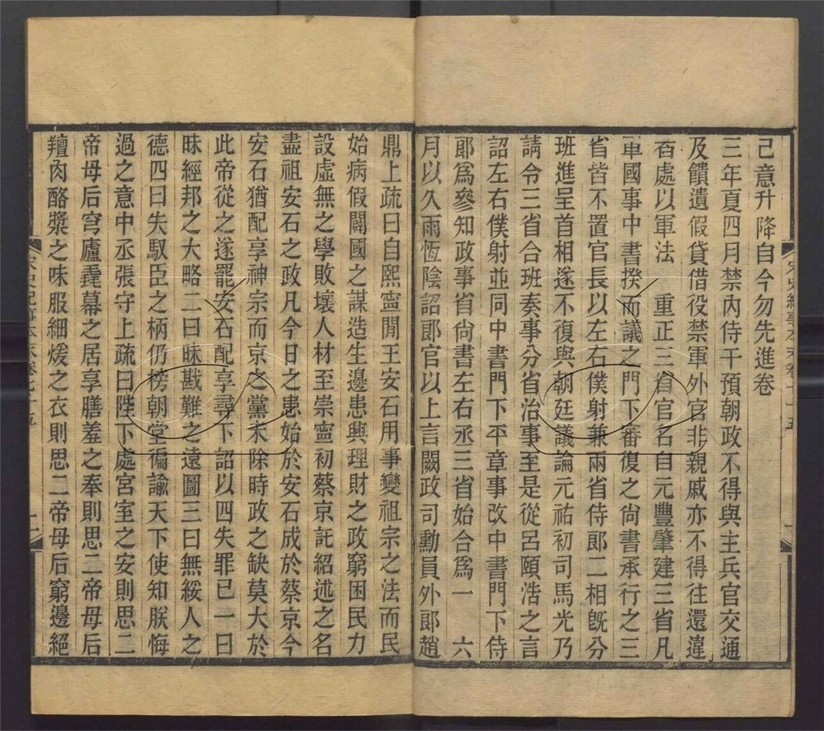 己意升降自今勿先進卷
三年夏四月禁內侍干預朝政不得與主兵官交通
及饋遺假貸借役禁軍外官非親戚亦不得往還違
者處以軍法　重正三省官名自元豐肇建三省凡
軍國事中書揆而議之門下審復之尚書承行之三
省皆不置官長以左右僕射兼兩省侍郎二相旣分
班進呈首相遂不復與朝廷議論元祐初司馬光乃
請令三省合班奏事分省治事至是從呂頤浩之言
詔左右僕射並同中書門下平章事改中書門下侍
郎爲參知政事省尚書左右丞三省始合爲一　六
月以久雨恆陰詔郎官以上言闕政司勳員外郎趙
宋史紀事本末卷六十五
鼎上疏曰自熙寧閒王安石用事變祖宗之法而民
始病假闢國之謀造生邊患興理財之政窮困民力
設虛無之學敗壞人材至崇寧初蔡京託紹述之名
盡祖安石之政凡今日之患始於安石成於蔡京今
安石猶配享神宗而京之黨未除時政之缺莫大於
此帝從之遂罷安石配享尋下詔以四失罪己一曰
昧經邦之大略二曰昧戡難之遠圖三曰無綏人之
德四曰失馭臣之柄仍榜朝堂徧諭天下使知朕悔
過之意中丞張守上疏曰陛下處宮室之安則思二
帝母后穹廬毳幕之居享膳羞之奉則思二帝母后
羶肉酪漿之味服細煖之衣則思二帝母后窮邊絕